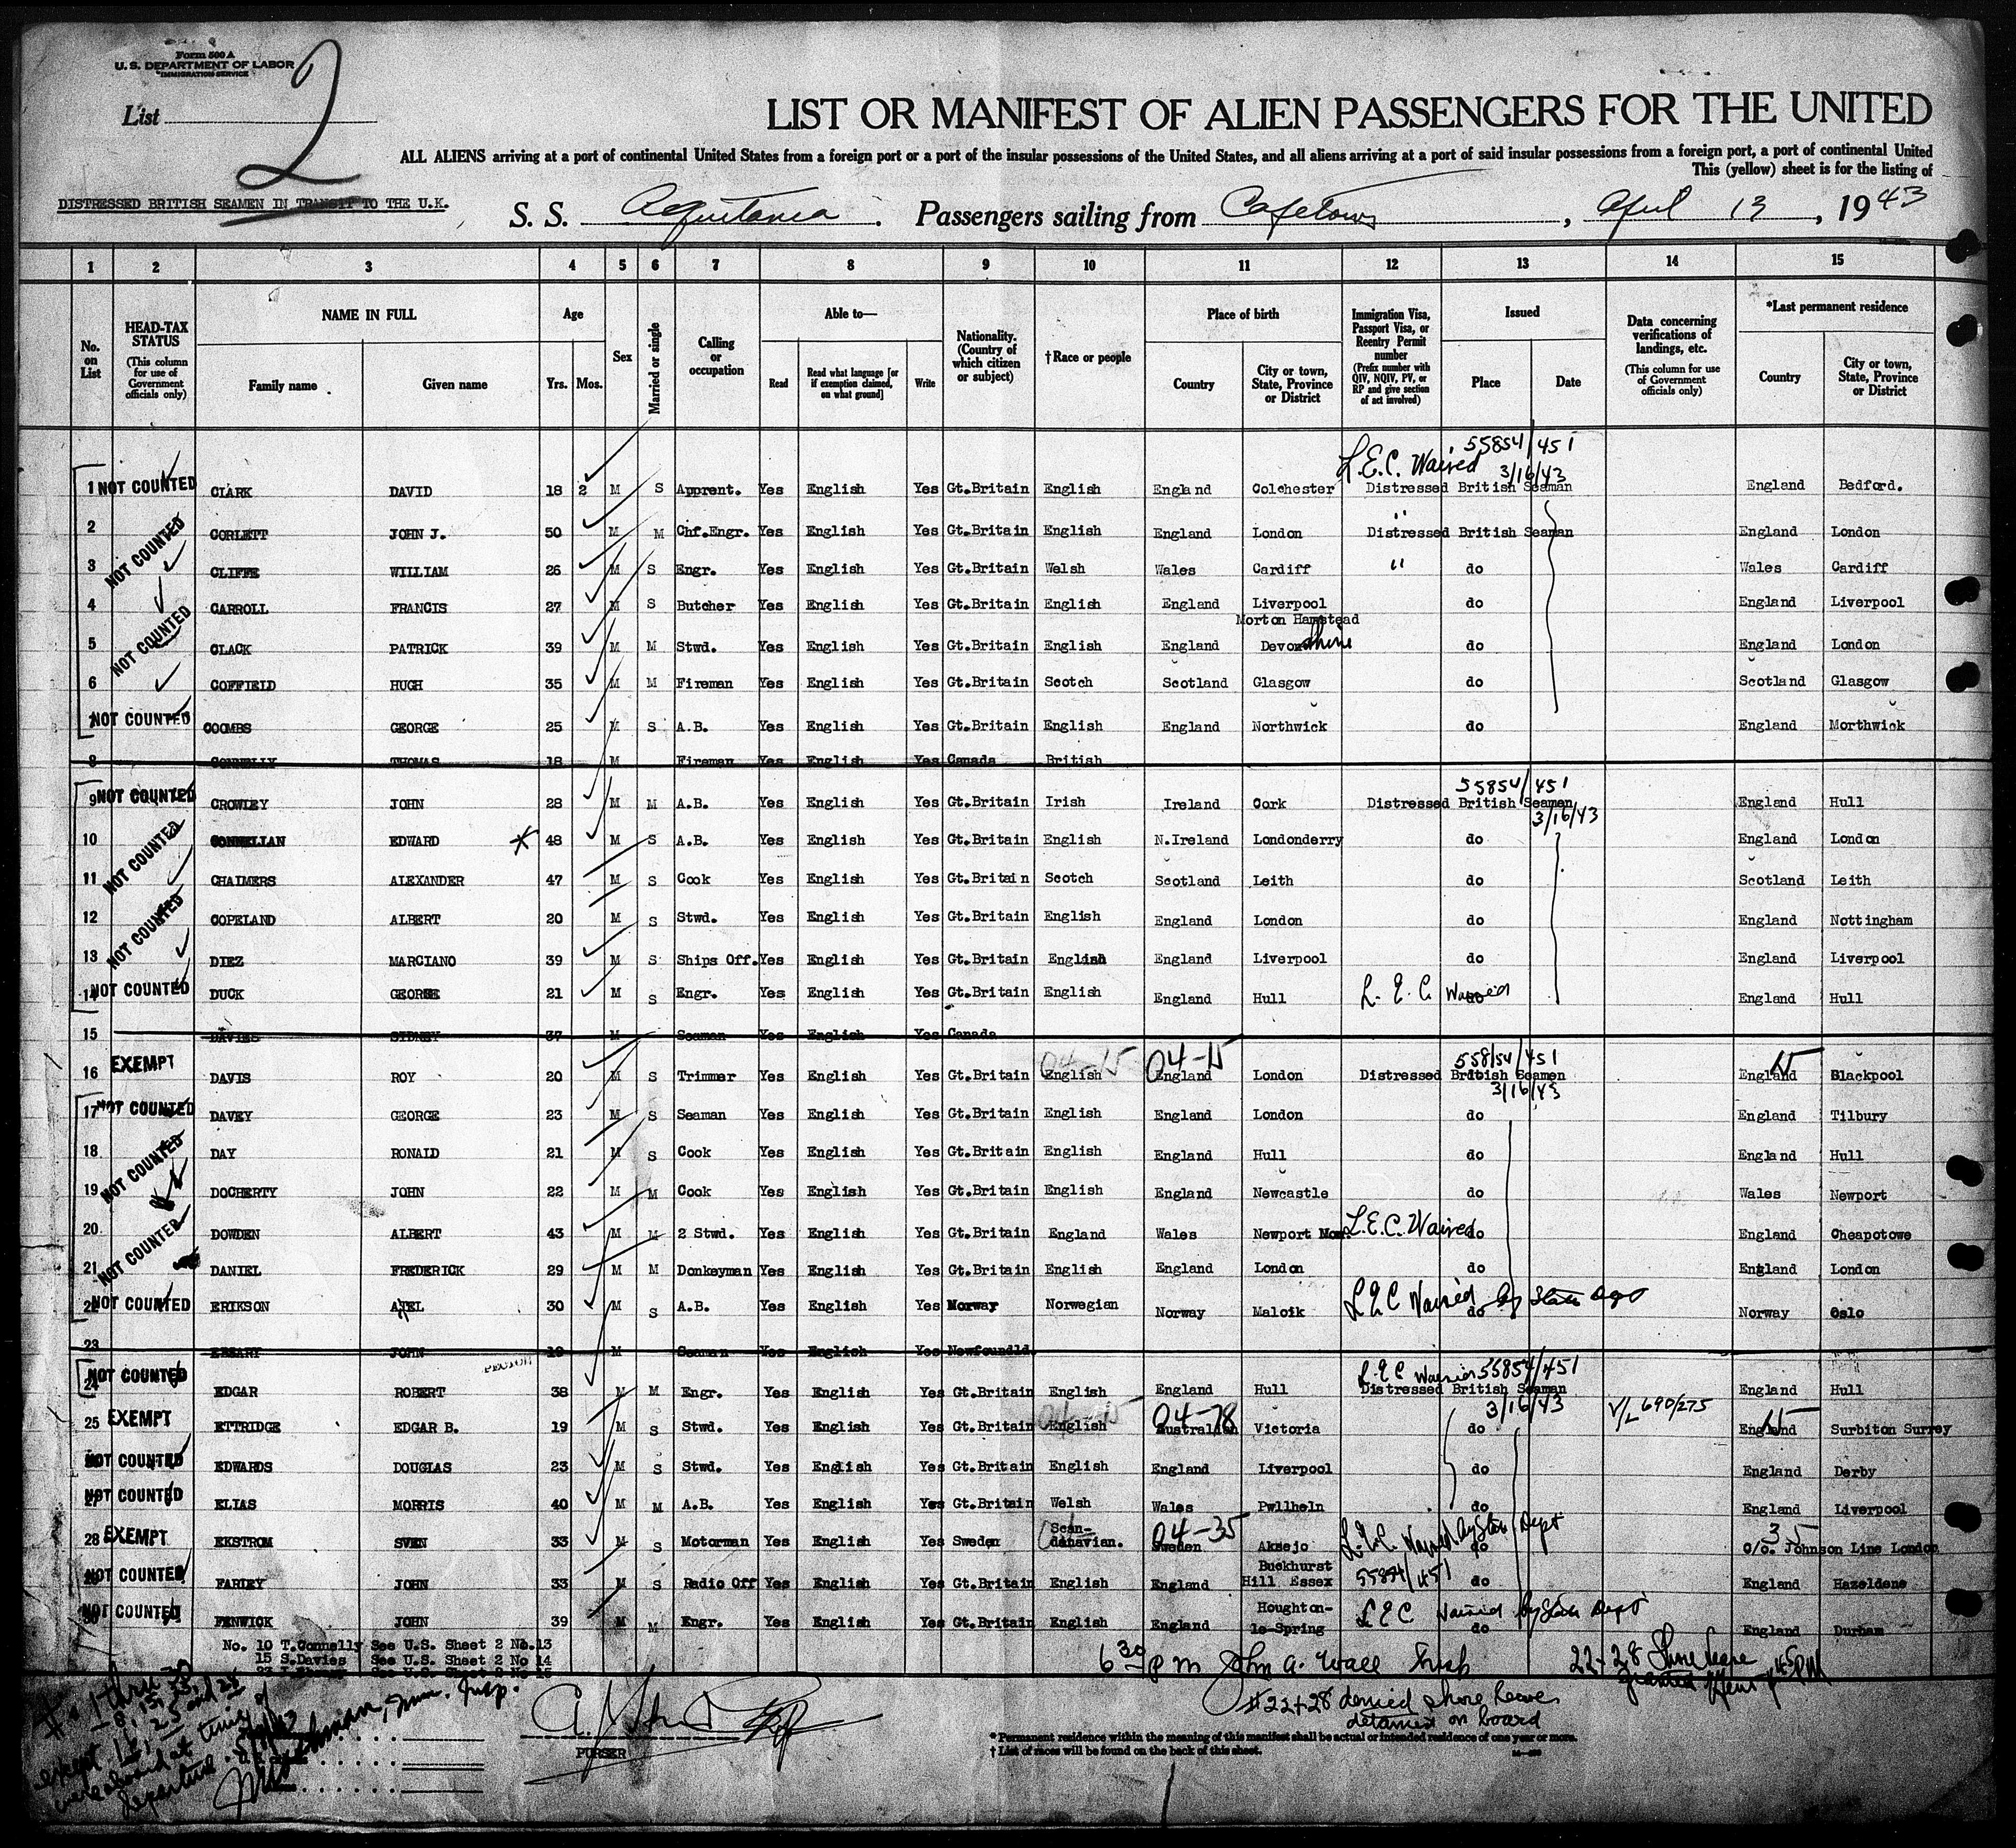 Form 500 A
U. S. DEPARTMENT OF LABOR
IMMIGRATION SERVICE
List 2
LIST OR MANIFEST OF ALIEN PASSENGERS FOR THE UNITED
ALL ALIENS arriving at a port of continental United States from a foreign port or a port of the insular possessions of the United States, and all aliens arriving at a port of said insular possessions from a foreign port, a port of continental United
This (yellow) sheet is for the listing of
DISTRESSED BRITISH SEAMEN IN TRANSIT TO THE U.K.
S. S. Aquitania. Passengers sailing from Capetown, April 13, 1943
1 2 3 4 5 6 7 8 9 10 11 12 13 14 15
No. on List
HEAD-TAX STATUS (This column for use of Government officials only)
NAME IN FULL Family name Given name
Age Yrs. Mos.
Sex
Married or single
Calling or occupation
Able to— Read Read what language [or if exemption claimed, on what ground] Write
Nationality. (Country of which citizen or subject)
†Race or people
Place of birth Country City or town, State, Province or District
Immigration Visa, Passport Visa, or Reentry Permit number (Prefix number with QIV, NQIV, PV, or RP and give section of act involved)
Issued Place Date
Data concerning verifications of landings, etc. (This column for use of Government officials only)
*Last permanent residence Country City or town, State, Province or District
L.E.C. Waived 55854/451 3/16/43
1 NOT COUNTED CLARK DAVID 18 2 M S Apprent. Yes English Yes Gt.Britain English England Colchester Distressed British Seaman England Bedford.
2 NOT COUNTED CORLETT JOHN J. 50 M M Chf.Engr. Yes English Yes Gt.Britain English England London " Distressed British Seaman England London
3 CLIFFE WILLIAM 26 M S Engr. Yes English Yes Gt.Britain Welsh Wales Cardiff " do Wales Cardiff
4 NOT COUNTED CARROLL FRANCIS 27 M S Butcher Yes English Yes Gt.Britain English England Liverpool do England Liverpool
5 CLACK PATRICK 39 M M Stwd. Yes English Yes Gt.Britain English England Morton Hamstead Devonshire do England London
6 COFFIELD HUGH 35 M M Fireman Yes English Yes Gt.Britain Scotch Scotland Glasgow do Scotland Glasgow
7 NOT COUNTED COOMBS GEORGE 25 M S A.B. Yes English Yes Gt.Britain English England Northwick do England Morthwick
8 CONNELLY THOMAS 18 M Fireman Yes English Yes Canada British
55854/451
9 NOT COUNTED CROWLEY JOHN 28 M M A.B. Yes English Yes Gt.Britain Irish Ireland Cork Distressed British Seaman 3/16/43 England Hull
10 NOT COUNTED CONNELLAN EDWARD 48 M S A.B. Yes English Yes Gt.Britain English N.Ireland Londonderry do England London
11 CHALMERS ALEXANDER 47 M S Cook Yes English Yes Gt.Britain Scotch Scotland Leith do Scotland Leith
12 NOT COUNTED COPELAND ALBERT 20 M S Stwd. Yes English Yes Gt.Britain English England London do England Nottingham
13 DIEZ MARCIANO 39 M S Ships Off. Yes English Yes Gt.Britain English England Liverpool do England Liverpool
14 NOT COUNTED DUCK GEORGE 21 M S Engr. Yes English Yes Gt.Britain English England Hull L.E.C. Waived do England Hull
15 DAVIES SYDNEY 37 M Seaman Yes English Yes Canada
04-15 04-15 55854/451 15
16 EXEMPT DAVIS ROY 20 M S Trimmer Yes English Yes Gt.Britain English England London Distressed British Seamen 3/16/43 England Blackpool
17 NOT COUNTED DAVEY GEORGE 23 M S Seaman Yes English Yes Gt.Britain English England London do England Tilbury
18 NOT COUNTED DAY RONALD 21 M S Cook Yes English Yes Gt.Britain English England Hull do England Hull
19 DOCHERTY JOHN 22 M M Cook Yes English Yes Gt.Britain English England Newcastle do Wales Newport
20 NOT COUNTED DOWDEN ALBERT 43 M M 2 Stwd. Yes English Yes Gt.Britain England Wales Newport Mon. L.E.C. Waived do England Cheapotowe
21 DANIEL FREDERICK 29 M M Donkeyman Yes English Yes Gt.Britain English England London do England London
22 NOT COUNTED ERIKSON AXEL 30 M S A.B. Yes English Yes Norway Norwegian Norway Maloik L.E.C Waived by State Dept do Norway Oslo
23 EBSARY JOHN 19 M Seaman Yes English Yes Newfoundld.
L.E.C Waived 55854/451
24 NOT COUNTED EDGAR ROBERT 38 M M Engr. Yes English Yes Gt.Britain English England Hull Distressed British Seaman 3/16/43 England Hull
25 EXEMPT ETTRIDGE EDGAR B. 19 M S Stwd. Yes English Yes Gt.Britain English 04-78 Australian Victoria do V/L 690/275 15 England Surbiton Surrey
26 NOT COUNTED EDWARDS DOUGLAS 23 M S Stwd. Yes English Yes Gt.Britain English England Liverpool do England Derby
27 NOT COUNTED ELIAS MORRIS 40 M M A.B. Yes English Yes Gt.Britain Welsh Wales Pwllheln do England Liverpool
28 EXEMPT EKSTROM SVEN 33 M S Motorman Yes English Yes Sweden Scandanavian. 04-35 Sweden Aksejo L.E.C. Waived by State Dept do 35 C/o. Johnson Line London
29 NOT COUNTED FARLEY JOHN 33 M S Radio Off Yes English Yes Gt.Britain English England Buckhurst Hill Essex 55854/451 do England Hazeldene
30 NOT COUNTED FENWICK JOHN 39 M M Engr. Yes English Yes Gt.Britain English England Houghton-le-Spring L.E.C Waived by State Dept do England Durham
No. 10 T.Connelly See U.S. Sheet 2 No.13
15 S.Davies See U.S. Sheet 2 No 14
6 30 P m John A. Wall Insp
22+28 Shore leave granted
#22+28 denied shore leave
detained on board
# 1 thru 30
except 8, 15, 23, 16, 25 and 28
were aboard at time of
departure
Imm. Insp.
PURSER
*Permanent residence within the meaning of this manifest shall be actual or intended residence of one year or more.
†List of races will be found on the back of this sheet.